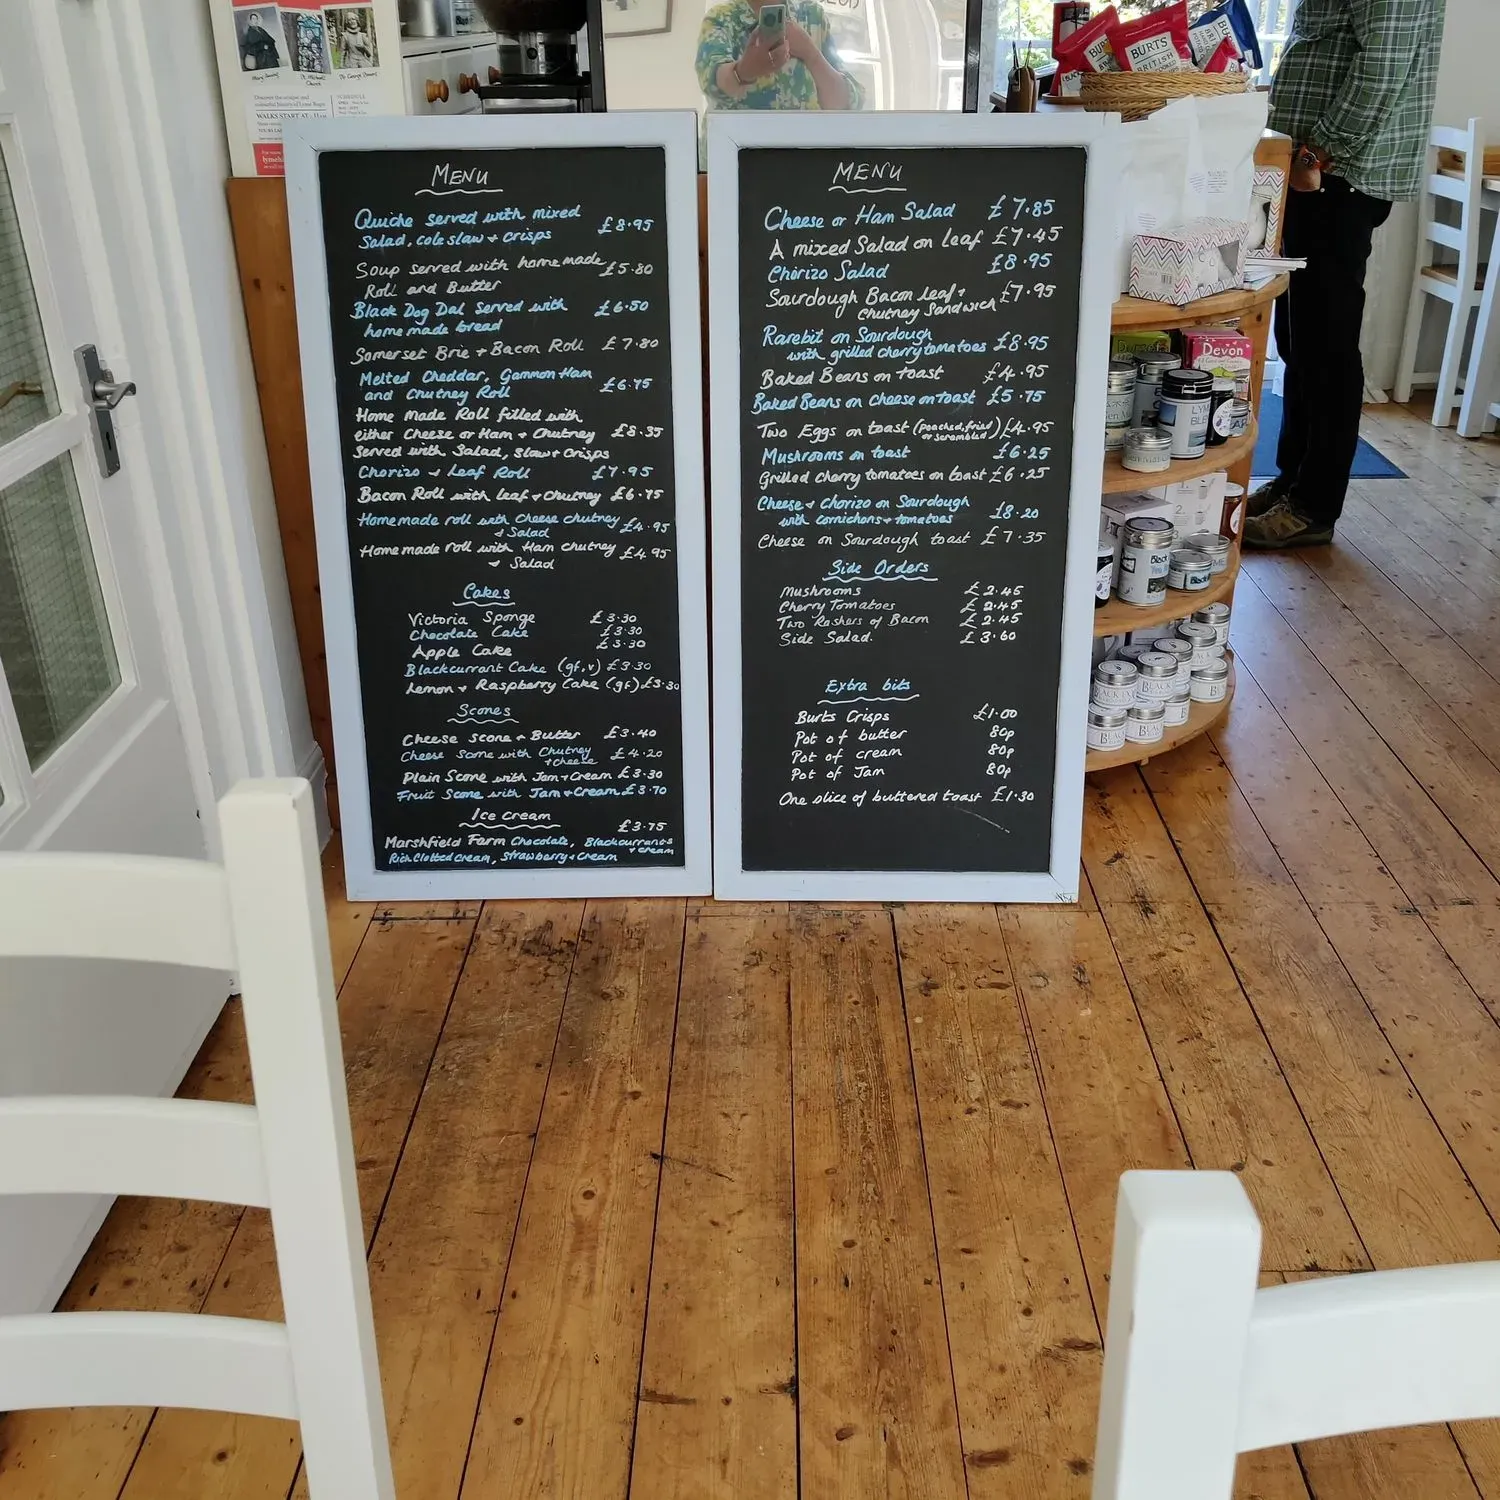 MENU
Quiche served with mixed
Salad, coleslaw + crisps £8.95
Soup served with home made
Roll and Butter £5.80
Black Dog Dal Served with
home made bread £6.50
Somerset Brie + Bacon Roll £7.80
Melted Cheddar, Gammon Ham
and Chutney Roll £6.75
Home made Roll filled with
either Cheese or Ham + Chutney £8.35
Served with Salad, slaw + Crisps
Chorizo + Leaf Roll £7.95
Bacon Roll with leaf + chutney £6.75
Homemade roll with Cheese chutney £4.95
+ Salad
Home made roll with Ham chutney £4.95
+ Salad
Cakes
Victoria Sponge £3.30
Chocolate Cake £3.30
Apple Cake £3.30
Blackcurrant Cake (gf,v) £3.30
Lemon + Raspberry Cake (gf) £3.30
Scones
Cheese Scone + Butter £3.40
Cheese Scone with Chutney £4.20
+ cheese
Plain Scone with Jam + Cream £3.30
Fruit Scone with Jam + Cream £3.70
Ice Cream £3.75
Marshfield Farm Chocolate, Blackcurrants
+ cream
Rich Clotted Cream, Strawberry + Cream
MENU
Cheese or Ham Salad £7.85
A mixed Salad on leaf £7.45
Chorizo Salad £8.95
Sourdough Bacon leaf + £7.95
chutney Sandwich
Rarebit on Sourdough
with grilled cherry tomatoes £8.95
Baked Beans on toast £4.95
Baked Beans on cheese on toast £5.75
Two Eggs on toast (poached, fried or scrambled) £4.95
Mushrooms on toast £6.25
Grilled cherry tomatoes on toast £6.25
Cheese + Chorizo on Sourdough
with cornichons + tomatoes £8.20
Cheese on Sourdough toast £7.35
Side Orders
Mushrooms £2.45
Cherry Tomatoes £2.45
Two Rashers of Bacon £2.45
Side Salad. £3.60
Extra bits
Burts Crisps £1.00
Pot of butter 80p
Pot of cream 80p
Pot of Jam 80p
One slice of buttered toast £1.30
BURTS
BRITISH
Devon
WALKS START AT